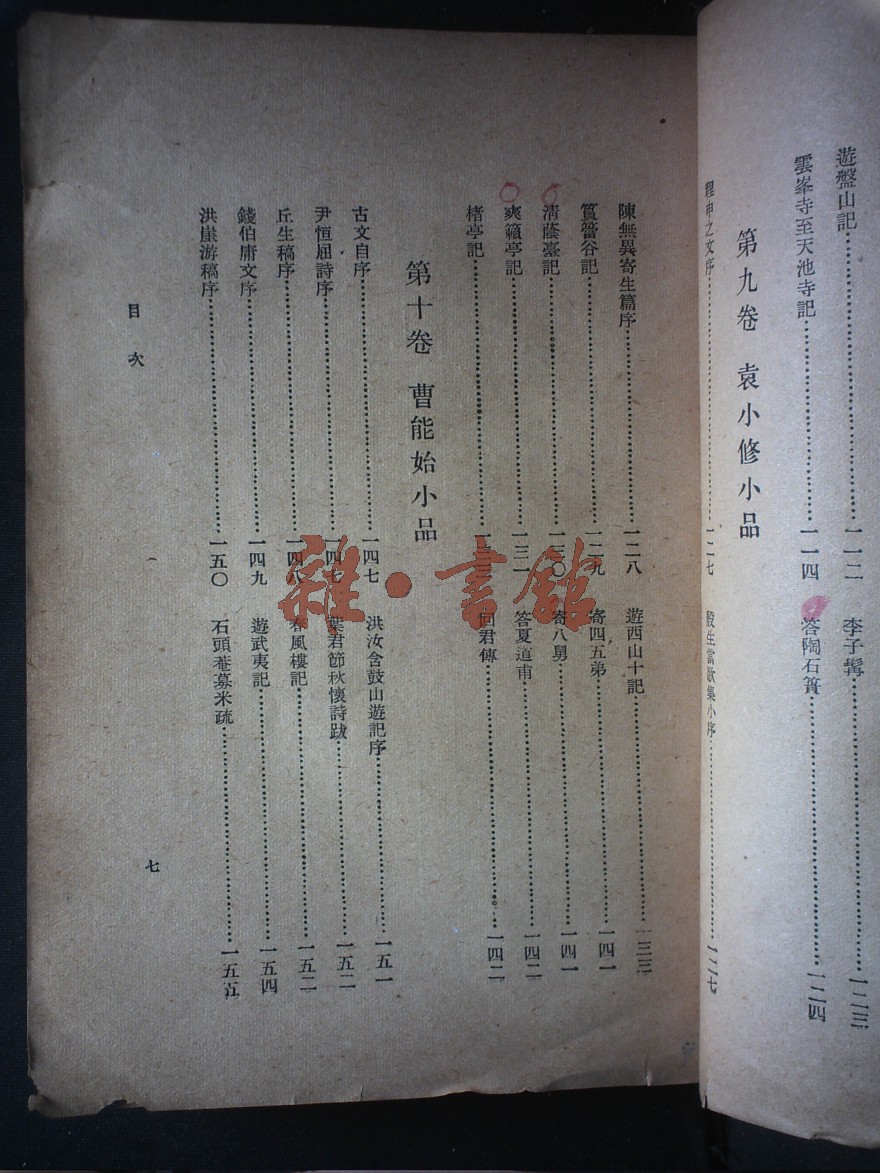 遊盤山記 一一二
李子髯 一二三
雲峯寺至天池寺記 一一四
答陶石簣 一二四
第九卷 袁小修小品
程申之文序 一二七
殷生當歌集小序 一二七
陳無異寄生篇序 一二八
遊西山十記 一三三
篔簹谷記 一二九
寄四五弟 一四一
清蔭臺記 一三〇
寄八舅 一四一
爽籟亭記 一三一
答夏道甫 一四二
楮亭記
回君傳 一四二
第十卷 曹能始小品
古文自序 一四七
洪汝含鼓山遊記序 一五一
尹恒屈詩序 一四七
葉君節秋懷詩跋 一五二
丘生稿序 一四八
春風樓記 一五二
錢伯庸文序 一四九
遊武夷記 一五四
洪崖游稿序 一五〇
石頭菴募米疏 一五五
目次
七
雜·書館